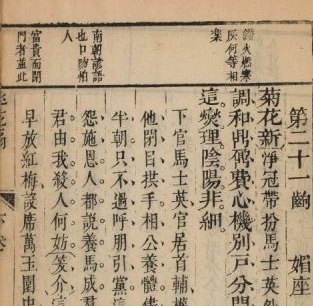 鑽火燃寒
灰何等相
業
南朝諺語
也口吻怕
人
富貴而閉
門者蓋此
第二十一齣　媚座
菊花新淨冠帶扮馬士英外
調和鼎鼐費心機別戶分門
這燮理陰陽非細
下官馬士英官居首輔權
他閉目拱手相公養體
半朝只不過呼朋引黨
怨施恩人都說養馬成群
君由我殺人何妨笑介這
早放紅梅設席萬玉園中